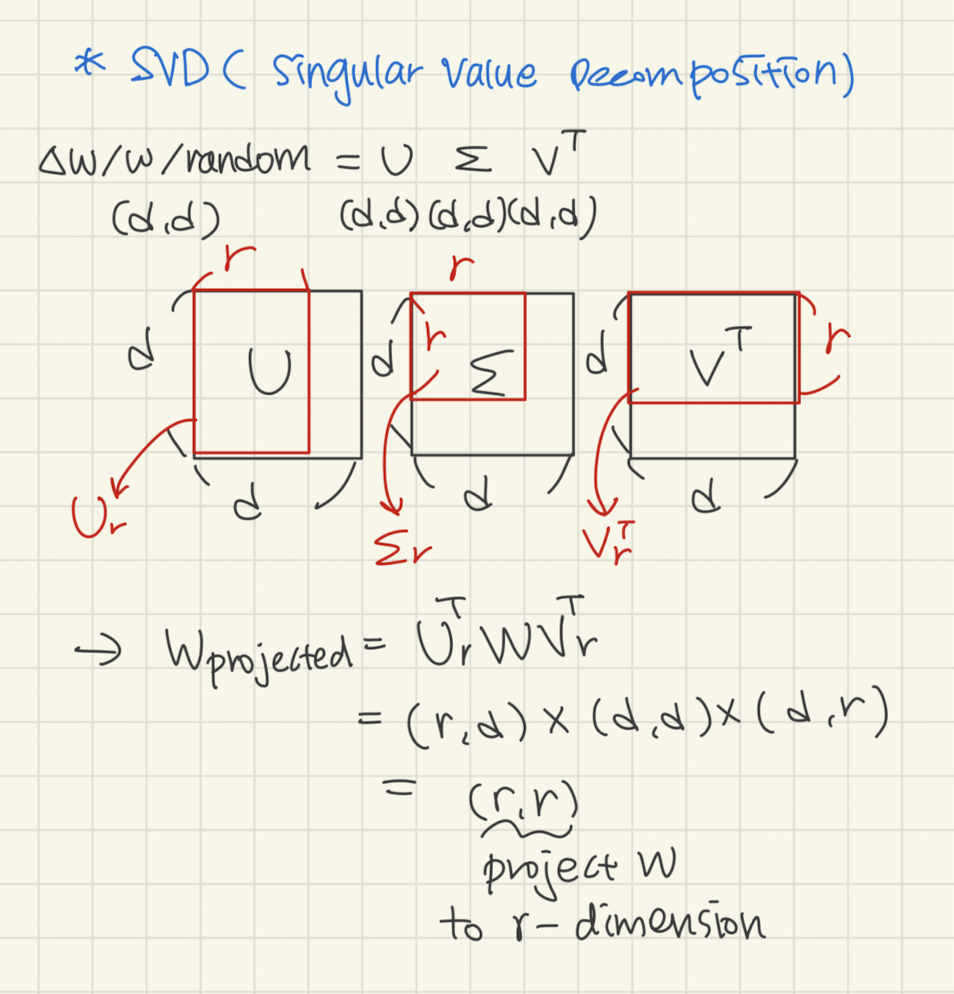 * SVD ( Singular Value Decomposition)
ΔW/W/random = U Σ V^T
(d,d) (d,d)(d,d)(d,d)
r r
d U d r Σ d V^T r
d d d
U_r Σ_r V_r^T
→ W_projected = U_r^T W V_r^T
= (r,d) × (d,d) × (d,r)
= (r,r)
project W
to r- dimension